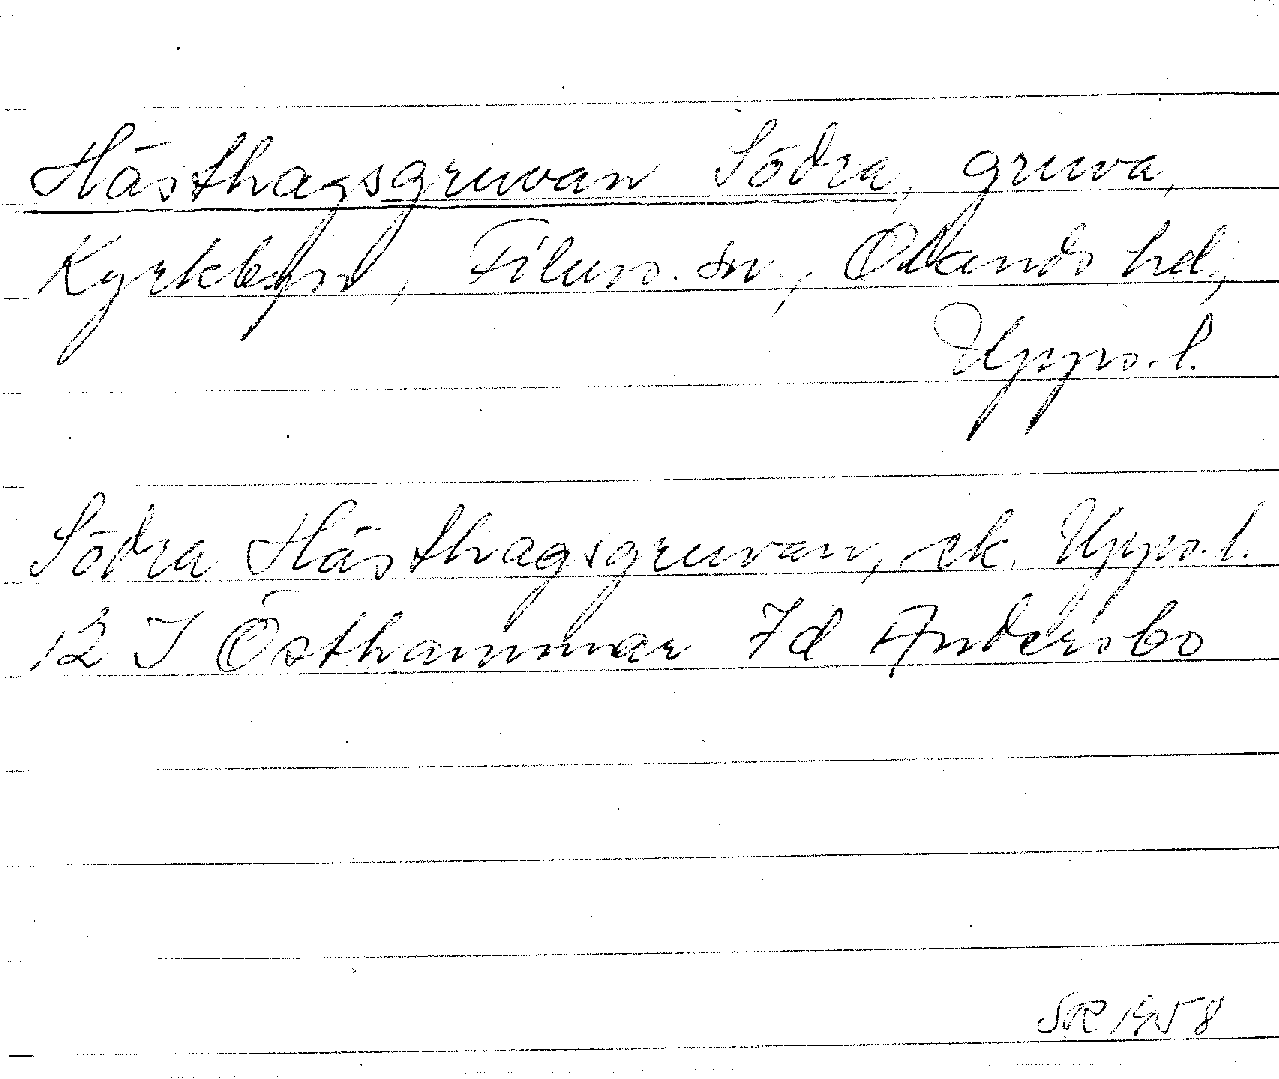 Hästhagsgruvan Södra, gruva,
Kyrkbyn, Films sn, Olands hd,
Upps. l.
Södra Hästhagsgruvan, ek. Upps. l.
12 I Östhammar 7d Andersbo
SR 1958